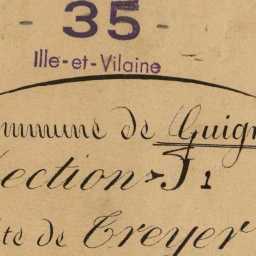 - 35 -
Ille-et-Vilaine
ommune de Guign
Section J 1
ite de Treyer